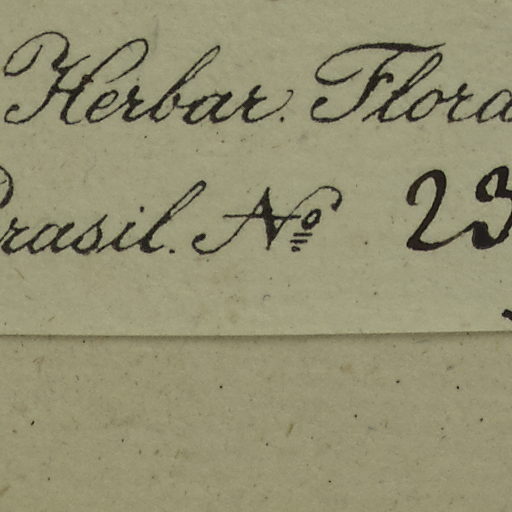 Herbar. Flora
Brasil. Nº 23